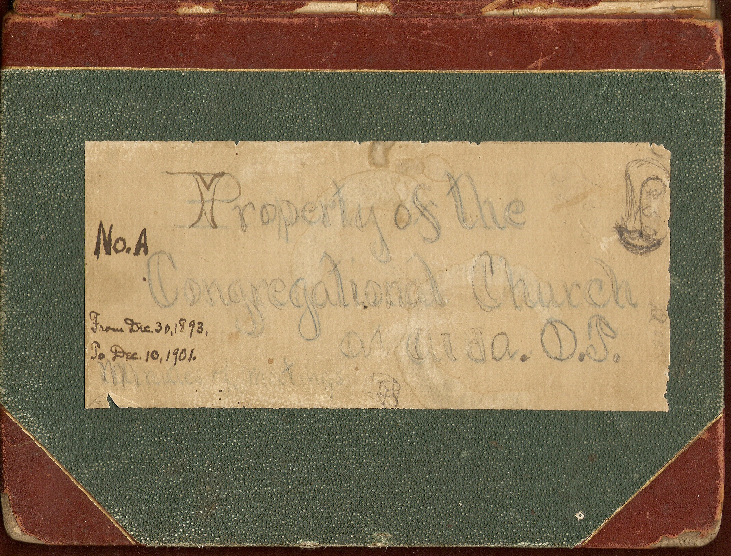 Property of the
No. A
Congregational Church
From Dec. 30, 1893,
To Dec. 10, 1901.
O.T.